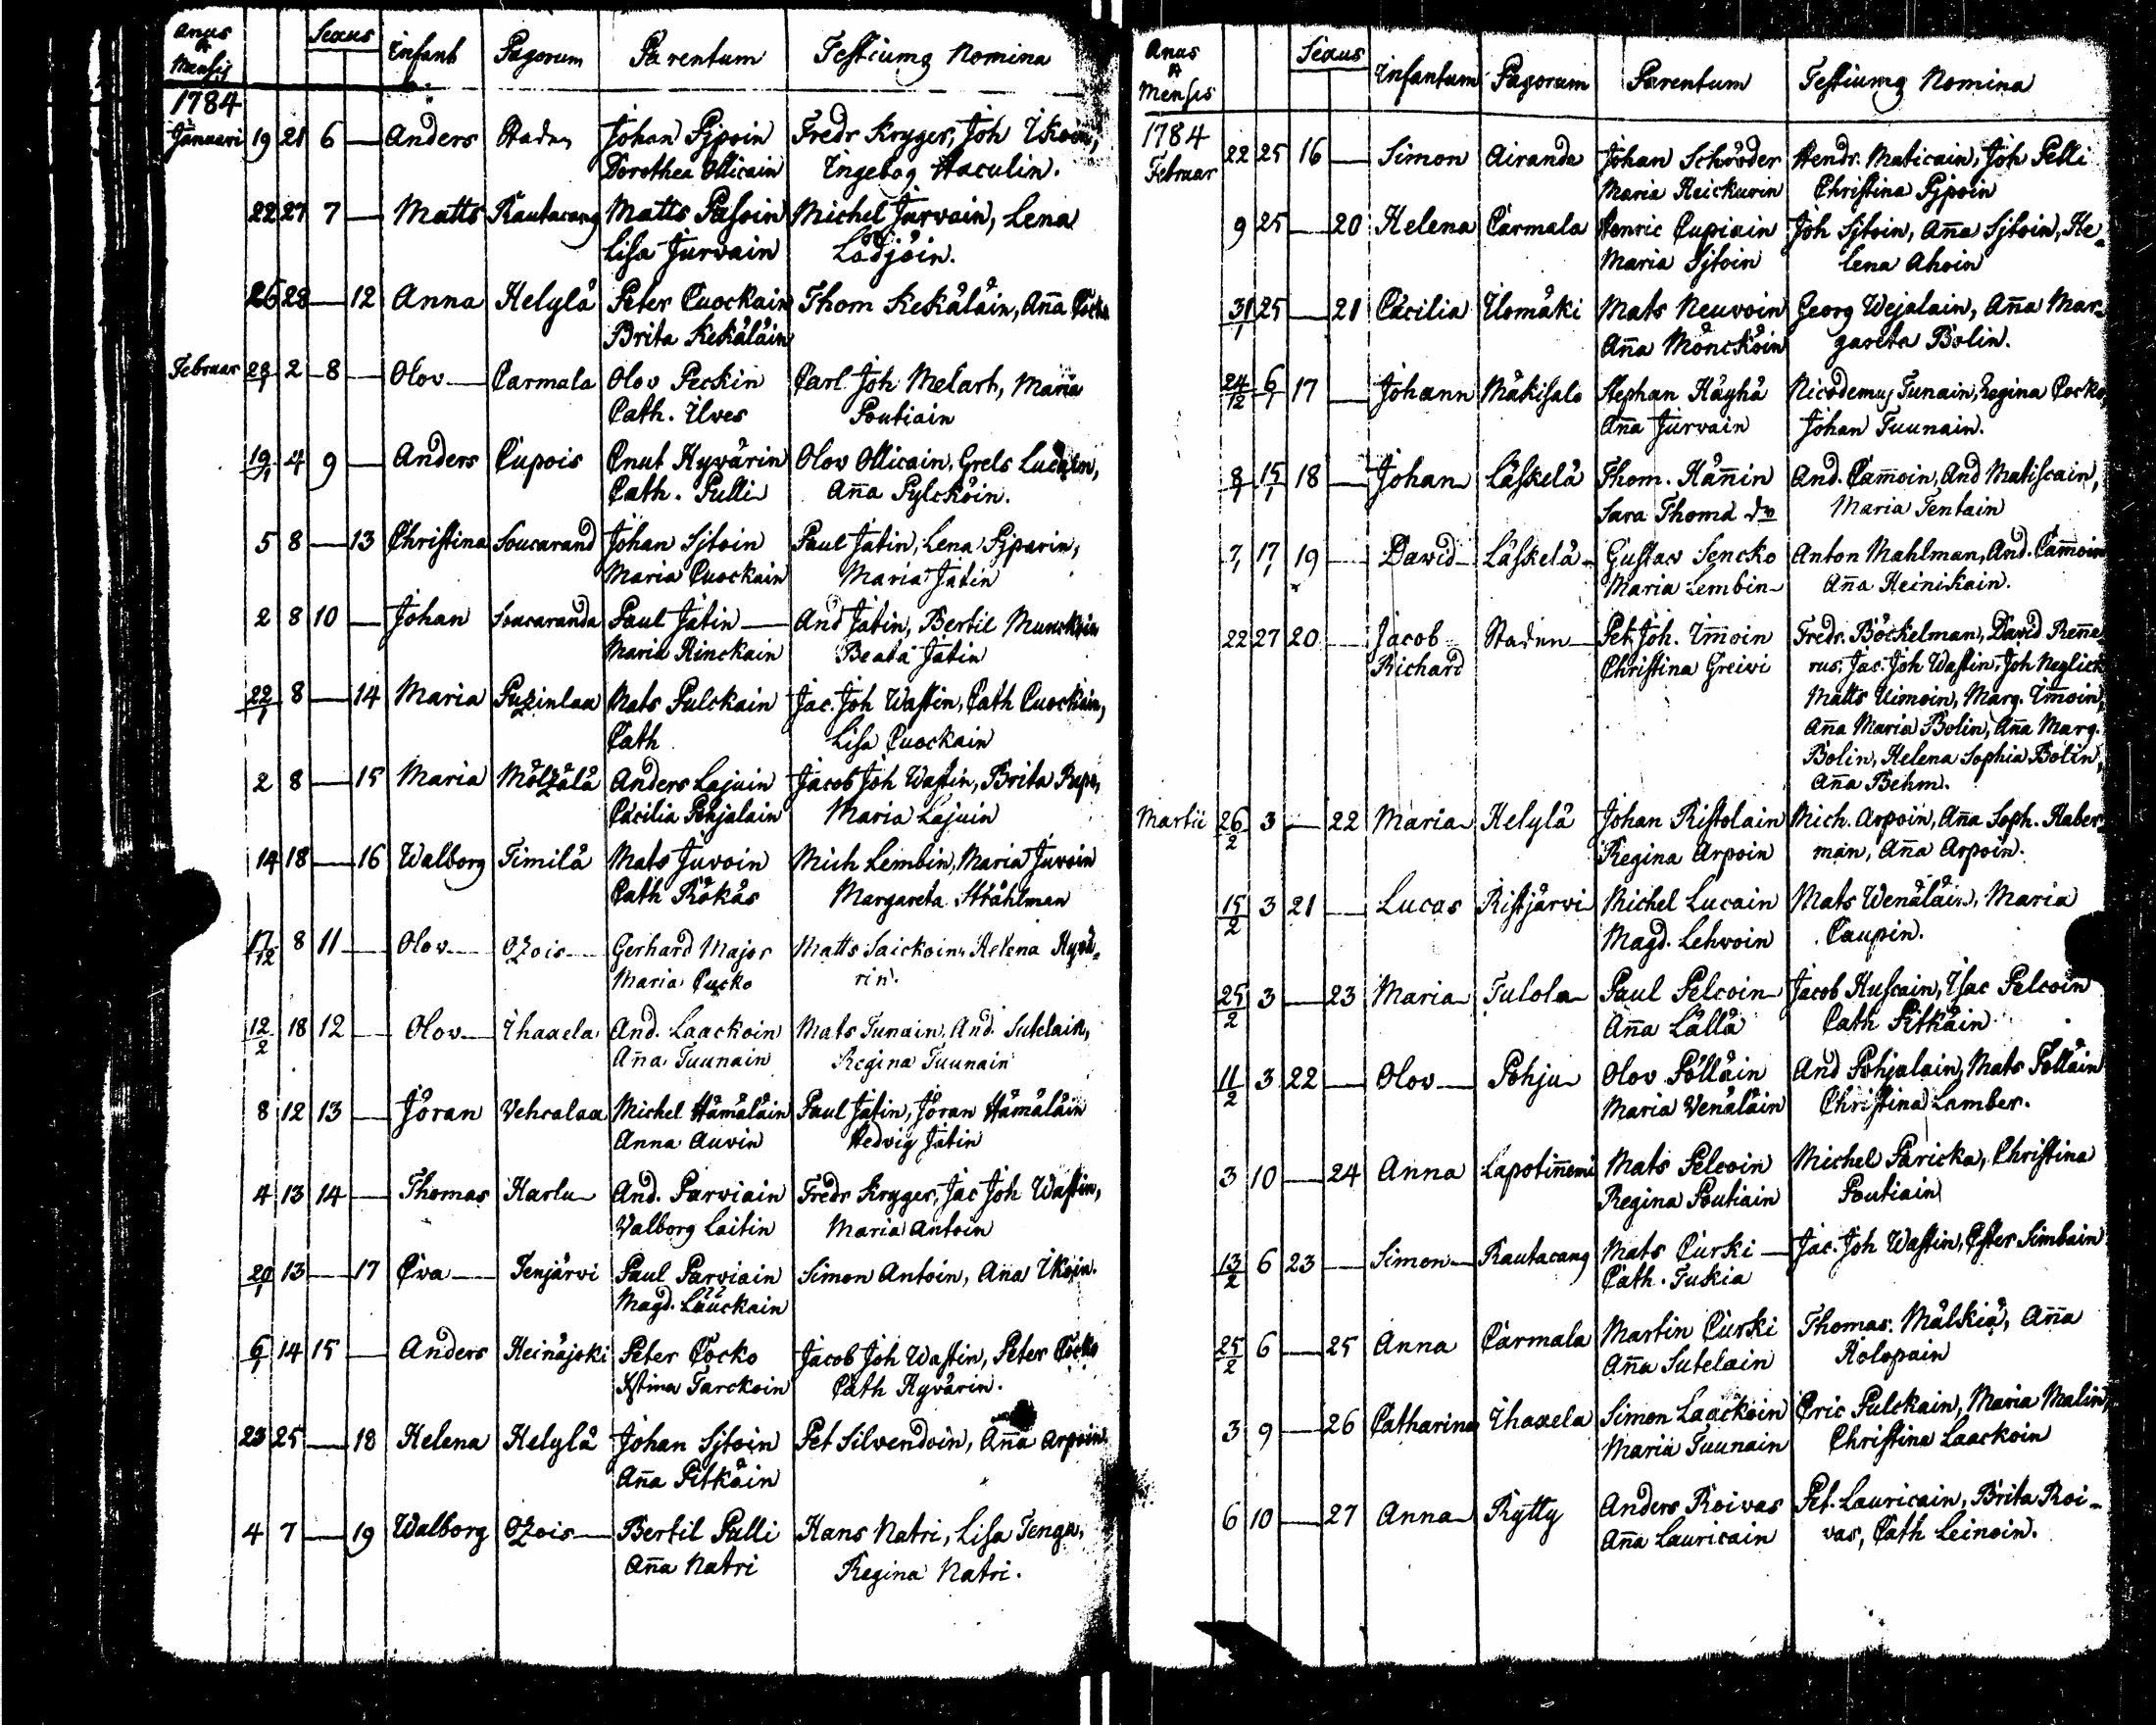 Anus & Mensis Sexus Infant Pagorum Parentum Testiumq Nomina
1784
Januari 19 21 6 — Anders Staden Johan Pipoin Fredr Kryger, Joh Ikoin,
Dorothea Ollicain Ingebog Haculin.
22 27 7 — Matts Rautacang Matts Pasoin Michel Jurvain, Lena
Lisa Jurvain Lådjöin.
26 28 — 12 Anna Helylä Peter Cuockain Thom Kekäläin, Aña
Brita Kekäläin
Februar 28/1 2 8 — Olov — Carmala Olov Peckin Carl Joh Melart, Maria
Cath. Ilves Poutiain
19/1 4 9 — Anders Cupois Cnut Hyvärin Olov Ollicain, Grels Lucain,
Cath. Pulli Aña Pylcköin.
5 8 — 13 Christina Soucarand Johan Sjtoin Paul Jatin, Lena Pjparin,
Maria Cuockain Maria Jatin
2 8 10 — Johan Soucaranda Paul Jätin — And Jatin, Bertil Munckoin
Maria Hinckain Beata Jatin
22/1 8 — 14 Maria Puzinlaa Mats Pulckain Jac. Joh Wastin, Cath Cuockain,
Cath Lisa Cuockain
2 8 — 15 Maria Mötzälä Anders Lajuin Jacob Joh Wastin, Brita Rapo,
Cäcilia Pohjalain Maria Lajuin
14 18 — 16 Walborg Timilä Mats Juvoin Mich Lembin, Maria Juvoin
Cath Rökäs Margareta Ståhlman
17/12 8 11 — Olov — Ozois — Gerhard Major Matts Saickoin, Helena Hyvä-
Maria Cucko rin.
12/2 18 12 — Olov — Ihaxela And. Laackoin Mats Tunain, And. Sutelain,
Aña Tuunain Regina Tuunain
8 12 13 — Jöran Vehcalaa Michel Hämäläin Paul Jatin, Jöran Hämäläin
Anna Auvin Hedvig Jätin
4 13 14 — Thomas Harlu And. Parviain Fredr Kryger, Jac Joh Wastin,
Valborg Laitin Maria Antoin
20/1 13 — 17 Eva — Tenjärvi Paul Parviain Simon Antoin, Ana Ikoin.
Magd. Lauckain
6/1 14 15 — Anders Heinäjoki Peter Cocko Jacob Joh Wastin, Peter Cocko
Stina Tarckoin Cath Hyvärin.
23 25 — 18 Helena Helylä Johan Sjtoin Pet Silvendoin, Aña Arpoin
Aña Pitkäin
4 7 — 19 Walborg Ozois — Bertil Pulli Hans Natri, Lisa Tenga,
Aña Natri Regina Natri.
Anus & Mensis Sexus Infantum Pagorum Parentum Testiumq Nomina
1784
Februar 22 25 16 — Simon Airanda Johan Schröder Hendr. Maticain, Joh Pelli
Maria Reickuvin Christina Pjpoin
9 25 — 20 Helena Carmala Henric Cupiain Joh Sjtoin, Aña Sjtoin, He-
Maria Sjtoin lena Ahoin
31/1 25 — 21 Cäcilia Ilomäki Mats Neuvoin Georg Wejalain, Aña Mar-
Aña Möncköin gareta Bolin.
24/12 6/1 17 — Johann Mäkisalo Stephan Häyhä Nicodemus Tunain, Regina Cocko,
Aña Jurvain Johan Tuunain.
8/1 15/1 18 — Johan Läskelä Thom. Häñin And. Camoin, And Matiscain,
Sara Thomä dr Maria Tentain
7/1 17/1 19 — David Läskelä Gustav Sencko Anton Mahlman, And. Camoin
Maria Lembin Aña Heinikain.
22 27 20 — Jacob Staden — Pet. Joh. Imoin Fredr. Böckelman, David Reñe-
Richard Christina Greivi rus, Jac. Joh Wastin, Joh Neglick
Matts Uimoin, Marg. Imoin,
Aña Maria Bolin, Aña Marg.
Bolin, Helena Sophia Bolin,
Aña Behm.
Martii 26/2 3 — 22 Maria Helylä Johan Ristolain Mich. Arpoin, Aña Soph. Haber
Regina Arpoin man, Aña Arpoin.
15/2 3 21 — Lucas Ristjärvi Michel Lucain Mats Wenäläin, Maria
Magd. Lehvoin Caupin.
25/2 3 — 23 Maria Tulola Paul Pelcoin Jacob Huscain, Isac Pelcoin
Aña Lällä Cath Pitkäin
11/2 3 22 — Olov — Pohju Olov Pölläin And Pohjalain, Mats Pölläin
Maria Venäläin Christina Lamber.
3 10 — 24 Anna Lapotiñemi Mats Pelcoin Michel Paricka, Christina
Regina Poutiain Poutiain
13/2 6 23 — Simon Rautacang Mats Curki — Jac. Joh Wastin, Ester Simbain
Cath. Tukia
25/2 6 — 25 Anna Carmala Martin Curki Thomas Mälkiä, Aña
Aña Sutelain Holopain
3 9 — 26 Catharina Ihaxela Simon Laackoin Eric Pulckain, Maria Malin,
Maria Tuunain Christina Laackoin
6 10 — 27 Anna Rytty Anders Roivas Pet. Lauricain, Brita Roi-
Aña Lauricain vas, Cath Leinoin.